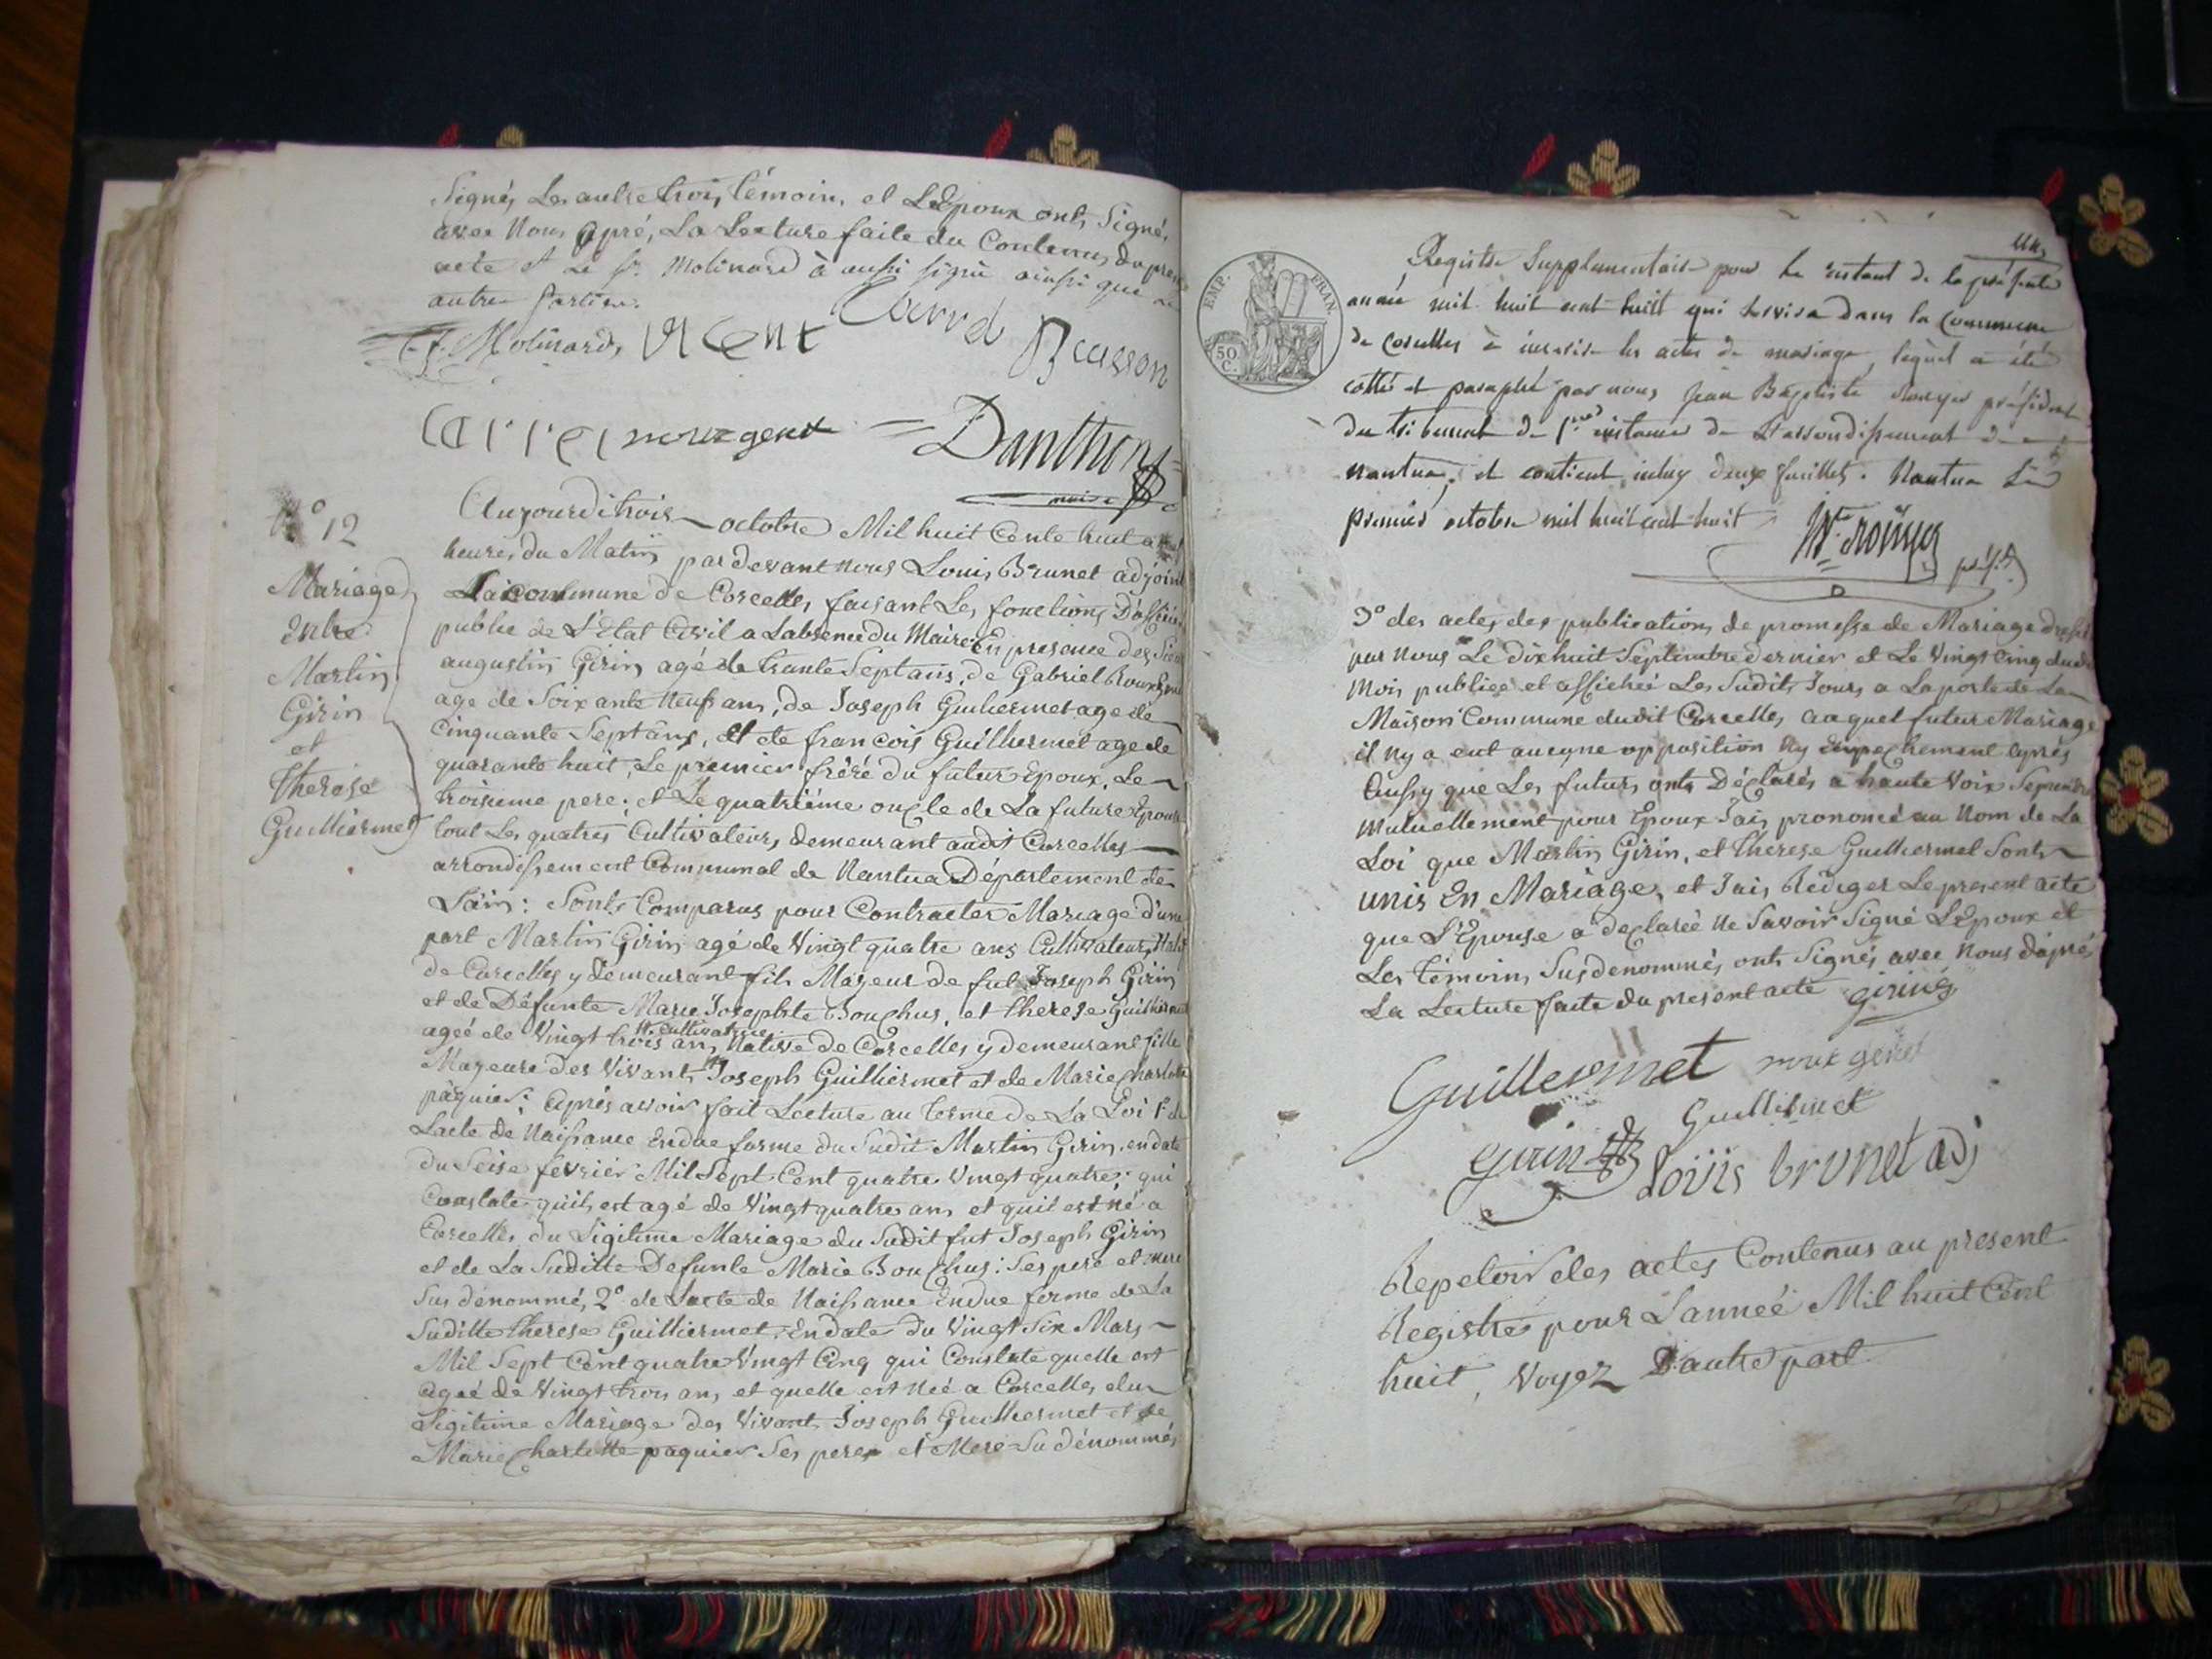 Signés Les autre trois témoins et L'Epoux onts Signés
avec Nous apré, La Lecture faite du Contenus du present
acte et Le Sr. Molinard à aussi signé ainsi que
autre partie.
Molinard, Vicent Carrel Buisson
Carrel rouxgenet = Danthon
maire
N° 12
Mariage
Entre
Martin
Girin
et
therese
Guilliermet
Aujourdi trois octobre Mil huit Cents huit a
heures du Matin par devant nous Louis Brunet adjoint
La Commune de Corcelles faisant Les fonctions D'officier
public de L'Etat Civil a Labsence du Maire: En presence des Sieurs
augustin Girin agé de trante Septans, de Gabriel Roux
age de Soixante neufs ans, de Joseph Guilliermet age de
Cinquante Septans, et de francois Guilliermet age de
quarante huit, Le premier frére du futur Epoux, Le
troisieme pere; et Le quatriéme oncle de La future Epouse
tout Les quatres Cultivateurs demeurant audit Corcelles
arrondissement Communal de Nantua Département de
L'ain: Sonts Comparus pour Contracter Mariage d'une
part Martin Girin agé de Vingt quatre ans Cultivateur, Natif
de Corcelles y demeurant fils Mageur de fut Joseph Girin
et de Défunte Marie Josephte Bouchus, et therese Guilliermet
agée de Vingt trois ans Native de Corcelles y demeurant fille
cultivatrice
Mageure des Vivants Joseph Guilliermet et de Marie Charlotte
paquier; Aprés avoir fait Lecture au terme de La Loi 1° de
Lacte de Naissance Endue forme du Sudit Martin Girin, en date
du Seise février Mil Sept Cent quatre Vingt quatre; qui
Constate quils est agé de Vingt quatre ans et quil est né a
Corcelles du Ligitime Mariage du Sudit fut Joseph Girin
et de La Suditte Defunte Marie Bouchus: Ses pere et mere
Sus dénommé, 2° de Lacte de Naissance Endue forme de La
Suditte therese Guilliermet, En date du Vingt Six Mars
Mil Sept Cent quatre Vingt Cinq qui Constate quelle est
agéé de Vingt trois ans et quelle est née a Corcelles du
Ligitime Mariage des Vivants Joseph Guilliermet et de
Marie Charlotte paquier Ses peres et Mere Su dénommés
EMP. FRAN.
50 C.
Un,
Registre Supplementaire pour le restant de la présente
année mil huit cent huit qui servira dans la Commune
de Corcelles à inscrire les actes de mariage, lequel a été
cotté et paraphé par nous Jean Baptiste Rouyer président
du tribunal de 1ere instance de L'arrondissement de
nantua, et contient icelui deux feuillets. Nantua Le
premier octobre mil huit cent huit
Rouyer
présidt
3° des actes des publications de promesse de Mariage dressé
par Nous Le dixhuit Septembre dernier et Le Vingt Cinq dudit
Mois publiée et affichée Les Sudits Jours a La porte de La
Maison Commune dudit Corcelles, auquel futur Mariage
il n'y a eut aucune opposition Ny Empechement aprés
Aussy que Les futurs onts Déclarés a haute Voix Seprendre
Mutuellement pour Epoux Jais prononcé au Nom de La
Loi que Martin Girin, et therese Guilliermet Sonts
unis En Mariage, et Jais Rédiger Le present acte
que L'Epouse a declarée Ne Savoir Signé L'Epoux et
Les témoins Susdenommés onts Signés avec Nous daprés
La Lecture faite du present acte girin
Guillermet roux genet
Guilliermet
girin Loüis brunet adj
Repetoir des actes Contenus au present
Registre pour L'anneé Mil huit Cent
huit, Voyez D'autre part